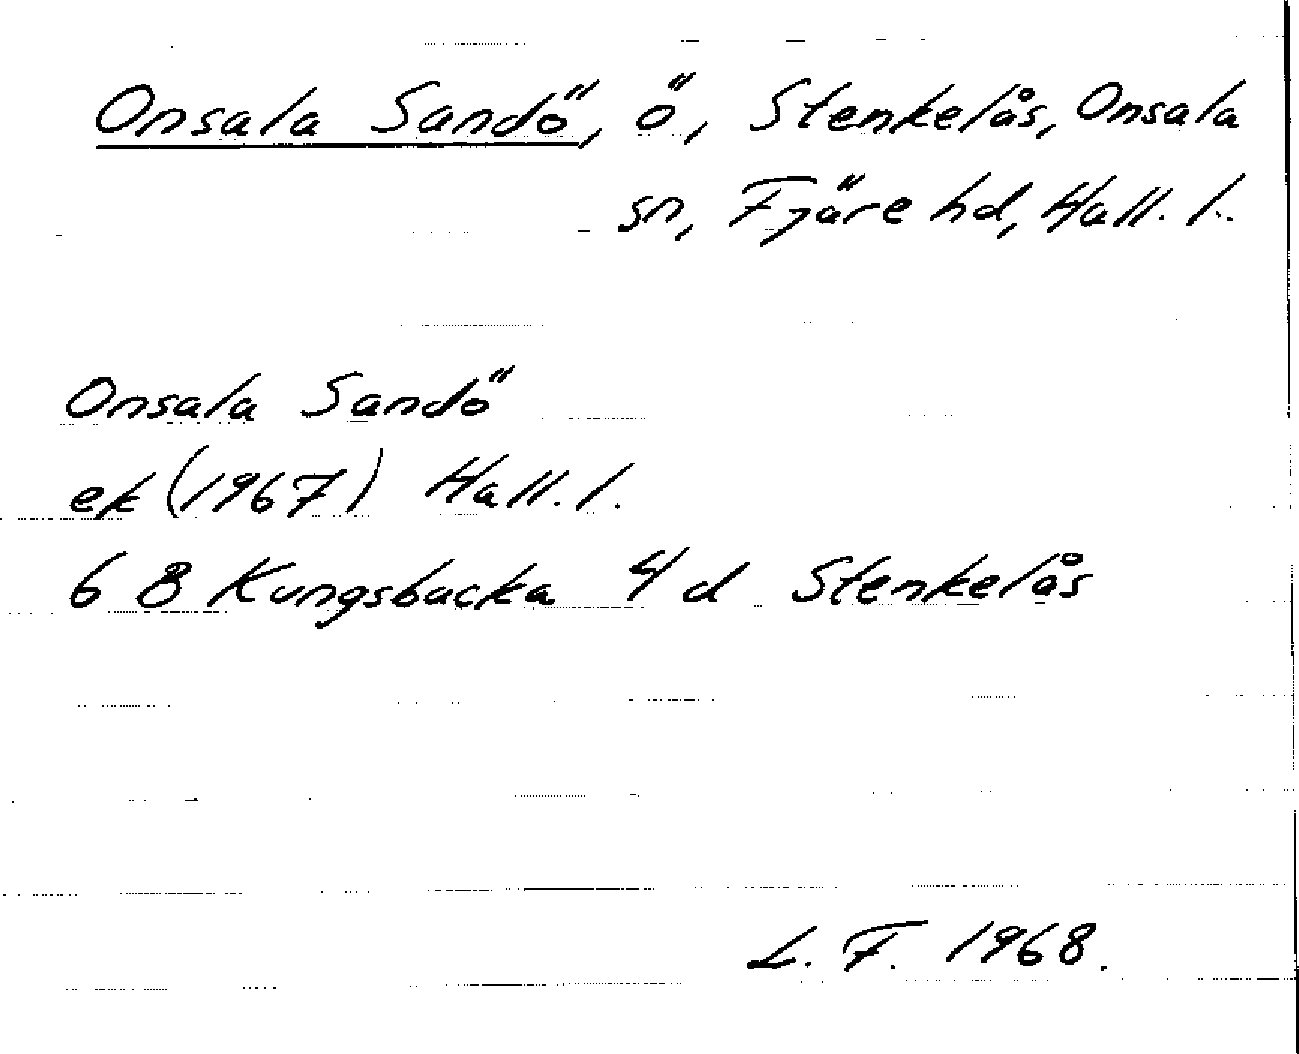 Onsala Sandö, ö, Stenkelås, Onsala
sn, Fjäre hd, Hall. l.
Onsala Sandö
ek (1967) Hall. l.
6 B Kungsbacka 4 d Stenkelås
L. F. 1968.